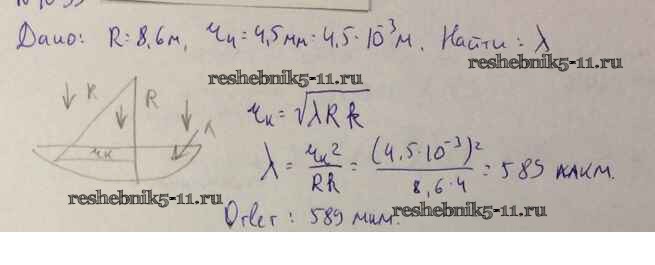 Дано: R = 8,6 м, r₄ = 4,5 мм = 4,5 · 10⁻³ м. Найти: λ
reshebnik5-11.ru
reshebnik5-11.ru
R R
rₖ
rₖ = √λRk
λ = rₖ²/Rk = (4,5·10⁻³)²/8,6·4 = 589 мкм.
reshebnik5-11.ru
Ответ: 589 мкм.
reshebnik5-11.ru